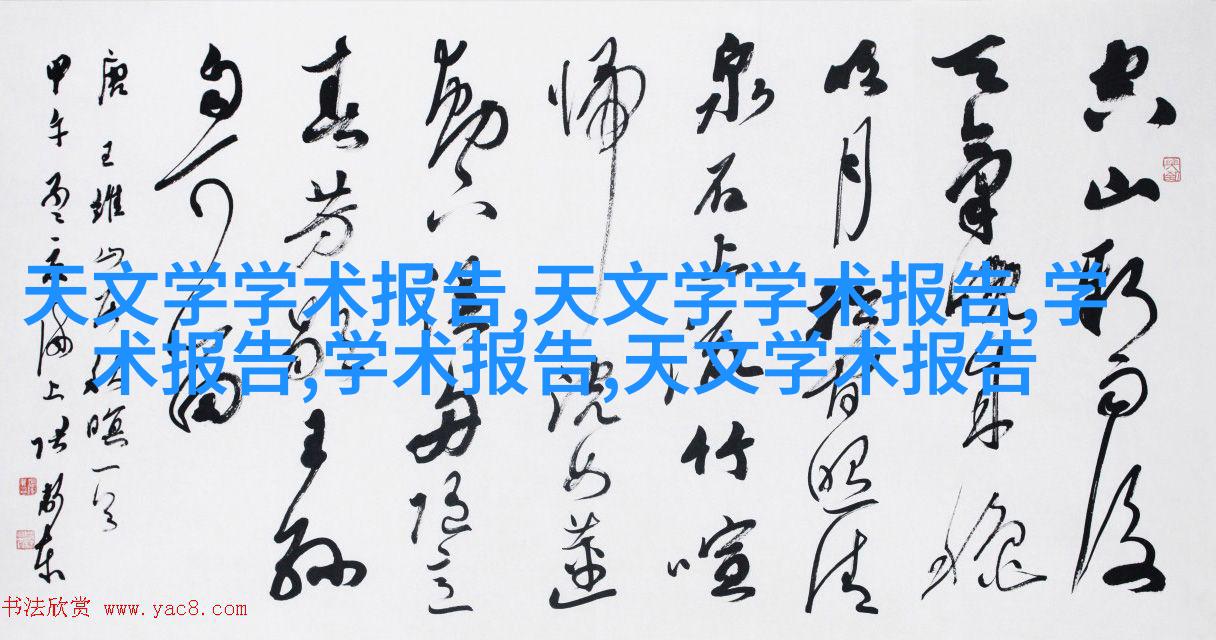 空山新雨後
天氣晚来秋
明月松间照清
泉石上流竹喧
归浣女莲
动下渔舟随意
春芳歇王孙
自可留
唐王维山居秋暝一首
甲午 海上
天文学学术报告,天文学学术报告,学
术报告,学术报告,天文学术报告
书法欣赏 www.yac8.com